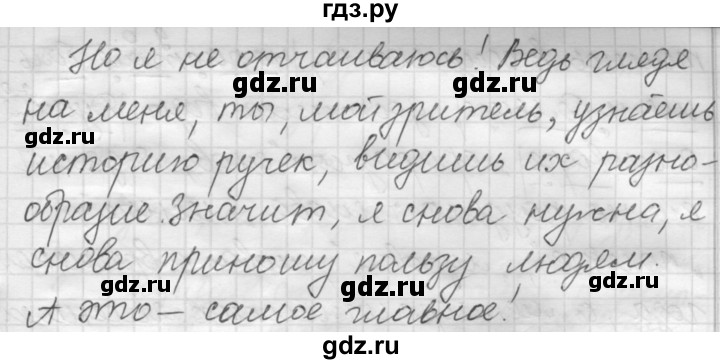 гдз.ру
Но я не отчаиваюсь! Ведь глядя
gdz.ru gdz.ru
на меня, ты, мой зритель, узнаёшь
историю ручек, видишь их разно-
gdz.ru gdz.ru
образие. Значит, я снова нужна, я
снова приношу пользу людям.
gdz.ru gdz.ru
А это – самое главное!